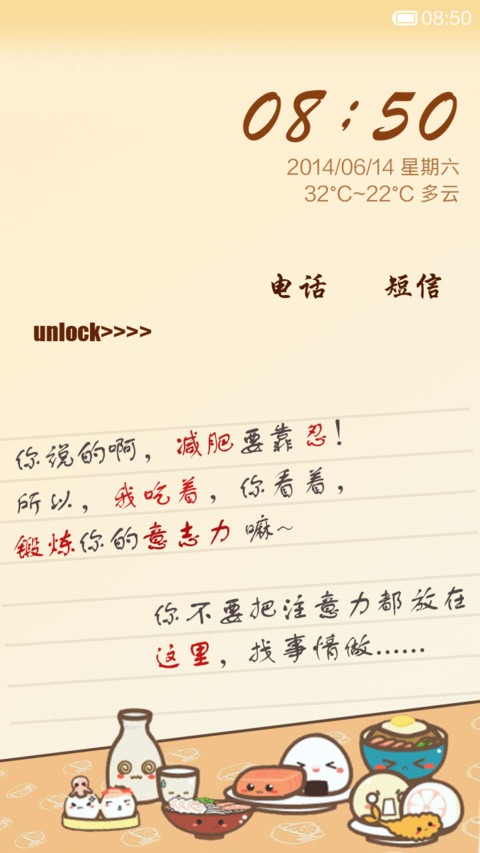 08:50
08:50
2014/06/14 星期六
32°C~22°C 多云
电话 短信
unlock>>>>
你说的啊，减肥要靠忍！
所以，我吃着，你看着，
锻炼你的意志力嘛~
你不要把注意力都放在
这里，找事情做……